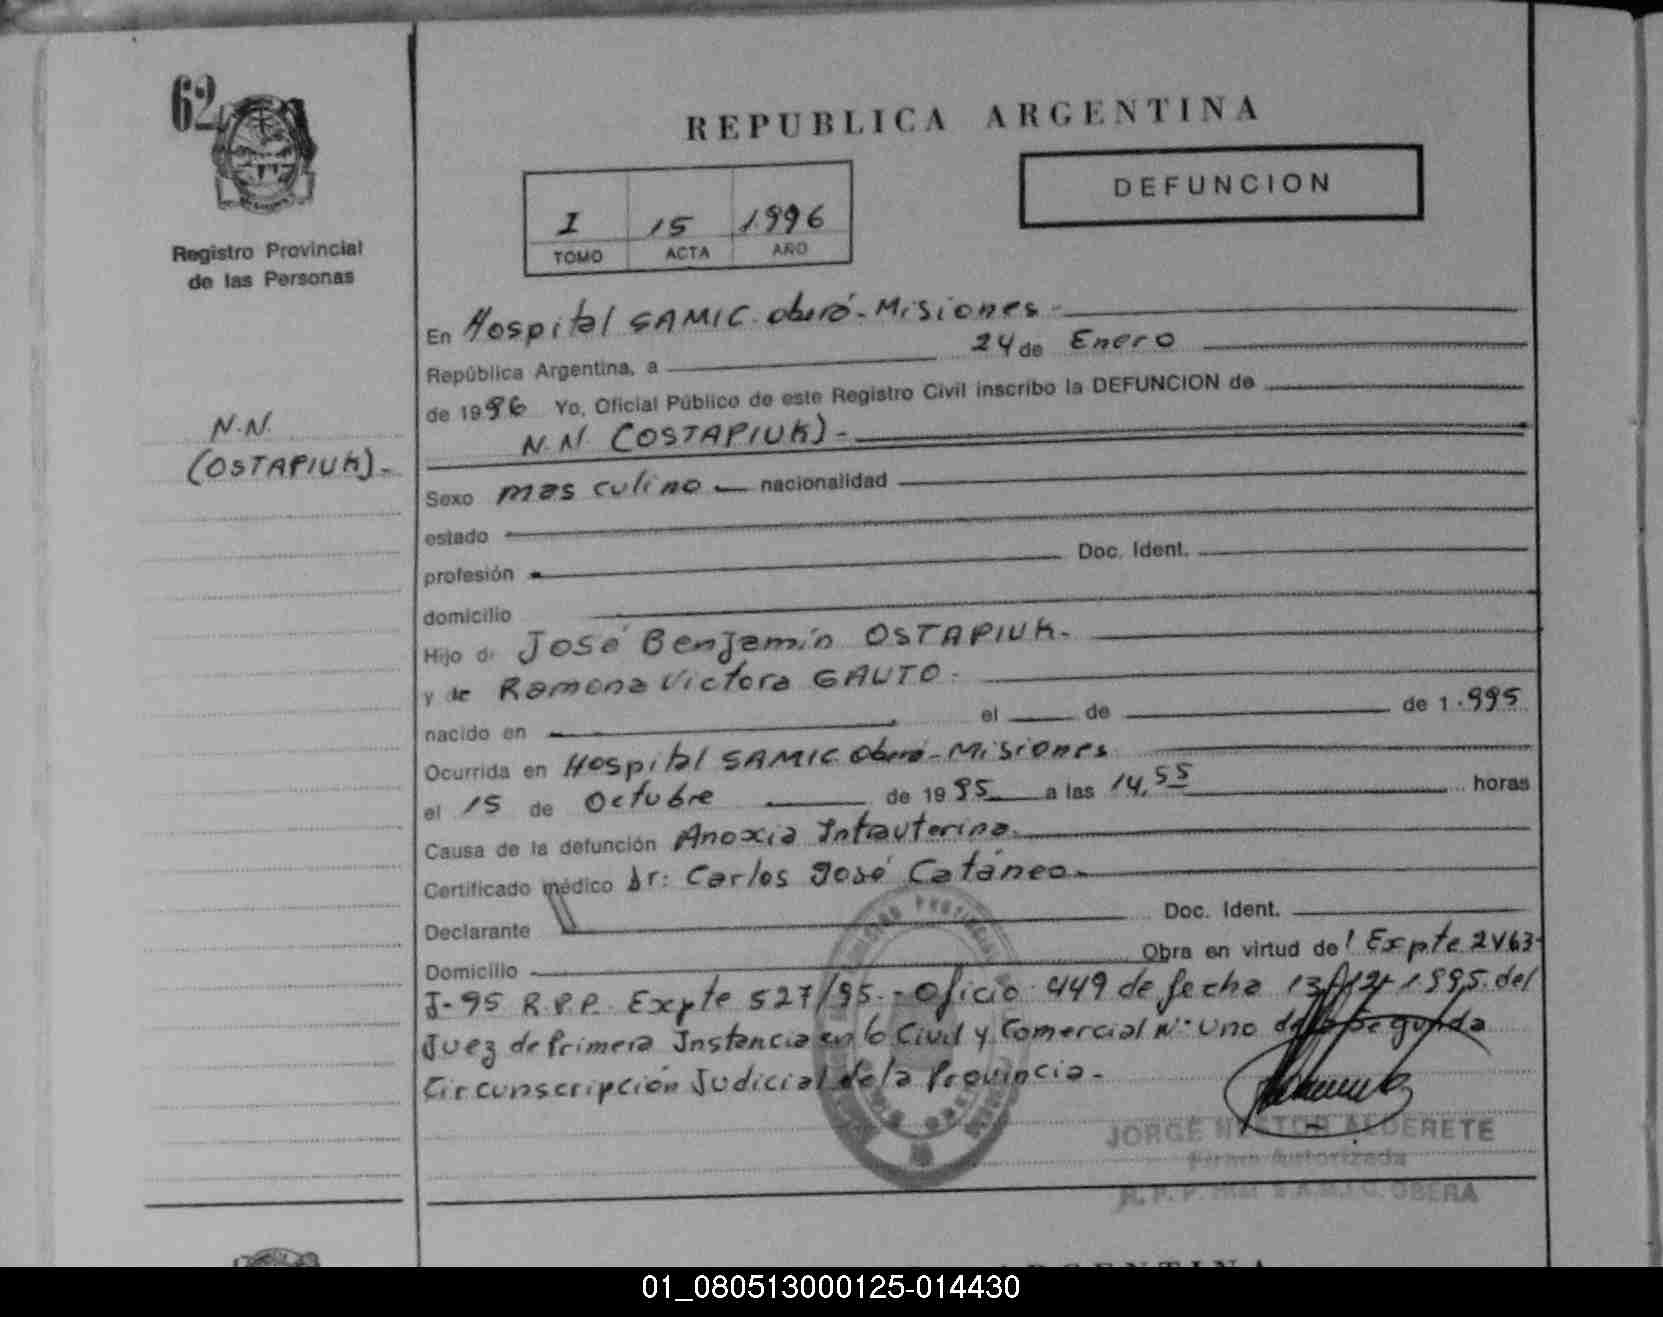 62
REPUBLICA ARGENTINA
DEFUNCION
I 15 1.996
TOMO ACTA AÑO
Registro Provincial
de las Personas
N.N.
(OSTAPIUK).-
En Hospital SAMIC. Oberá-Misiones.-
República Argentina, a 24 de Enero
de 1996 Yo, Oficial Público de este Registro Civil inscribo la DEFUNCION de
N.N. (OSTAPIUK).-
Sexo masculino nacionalidad
estado
profesión Doc. Ident.
domicilio
Hijo de José Benjamín OSTAPIUK.
y de Ramona Victora GAUTO.
nacido en el de de 1.995
Ocurrida en Hospital SAMIC Oberá-Misiones
el 15 de Octubre de 1995 a las 14,55 horas
Causa de la defunción Anoxia Intrauterina.
Certificado médico Dr: Carlos José Catáneo.
Declarante Doc. Ident.
Domicilio Obra en virtud de! Expte 2463-
J-95 R.P.P. Expte 527/95.- Oficio 449 de fecha 13/12/1.995. del
Juez de Primera Instancia en lo Civil y Comercial Nº Uno de la Segunda
Circunscripción Judicial de la Provincia.-
JORGE NESTOR ALDERETE
Firma Autorizada
R. P. P. S.A.M.I.C. OBERA
01_080513000125-014430